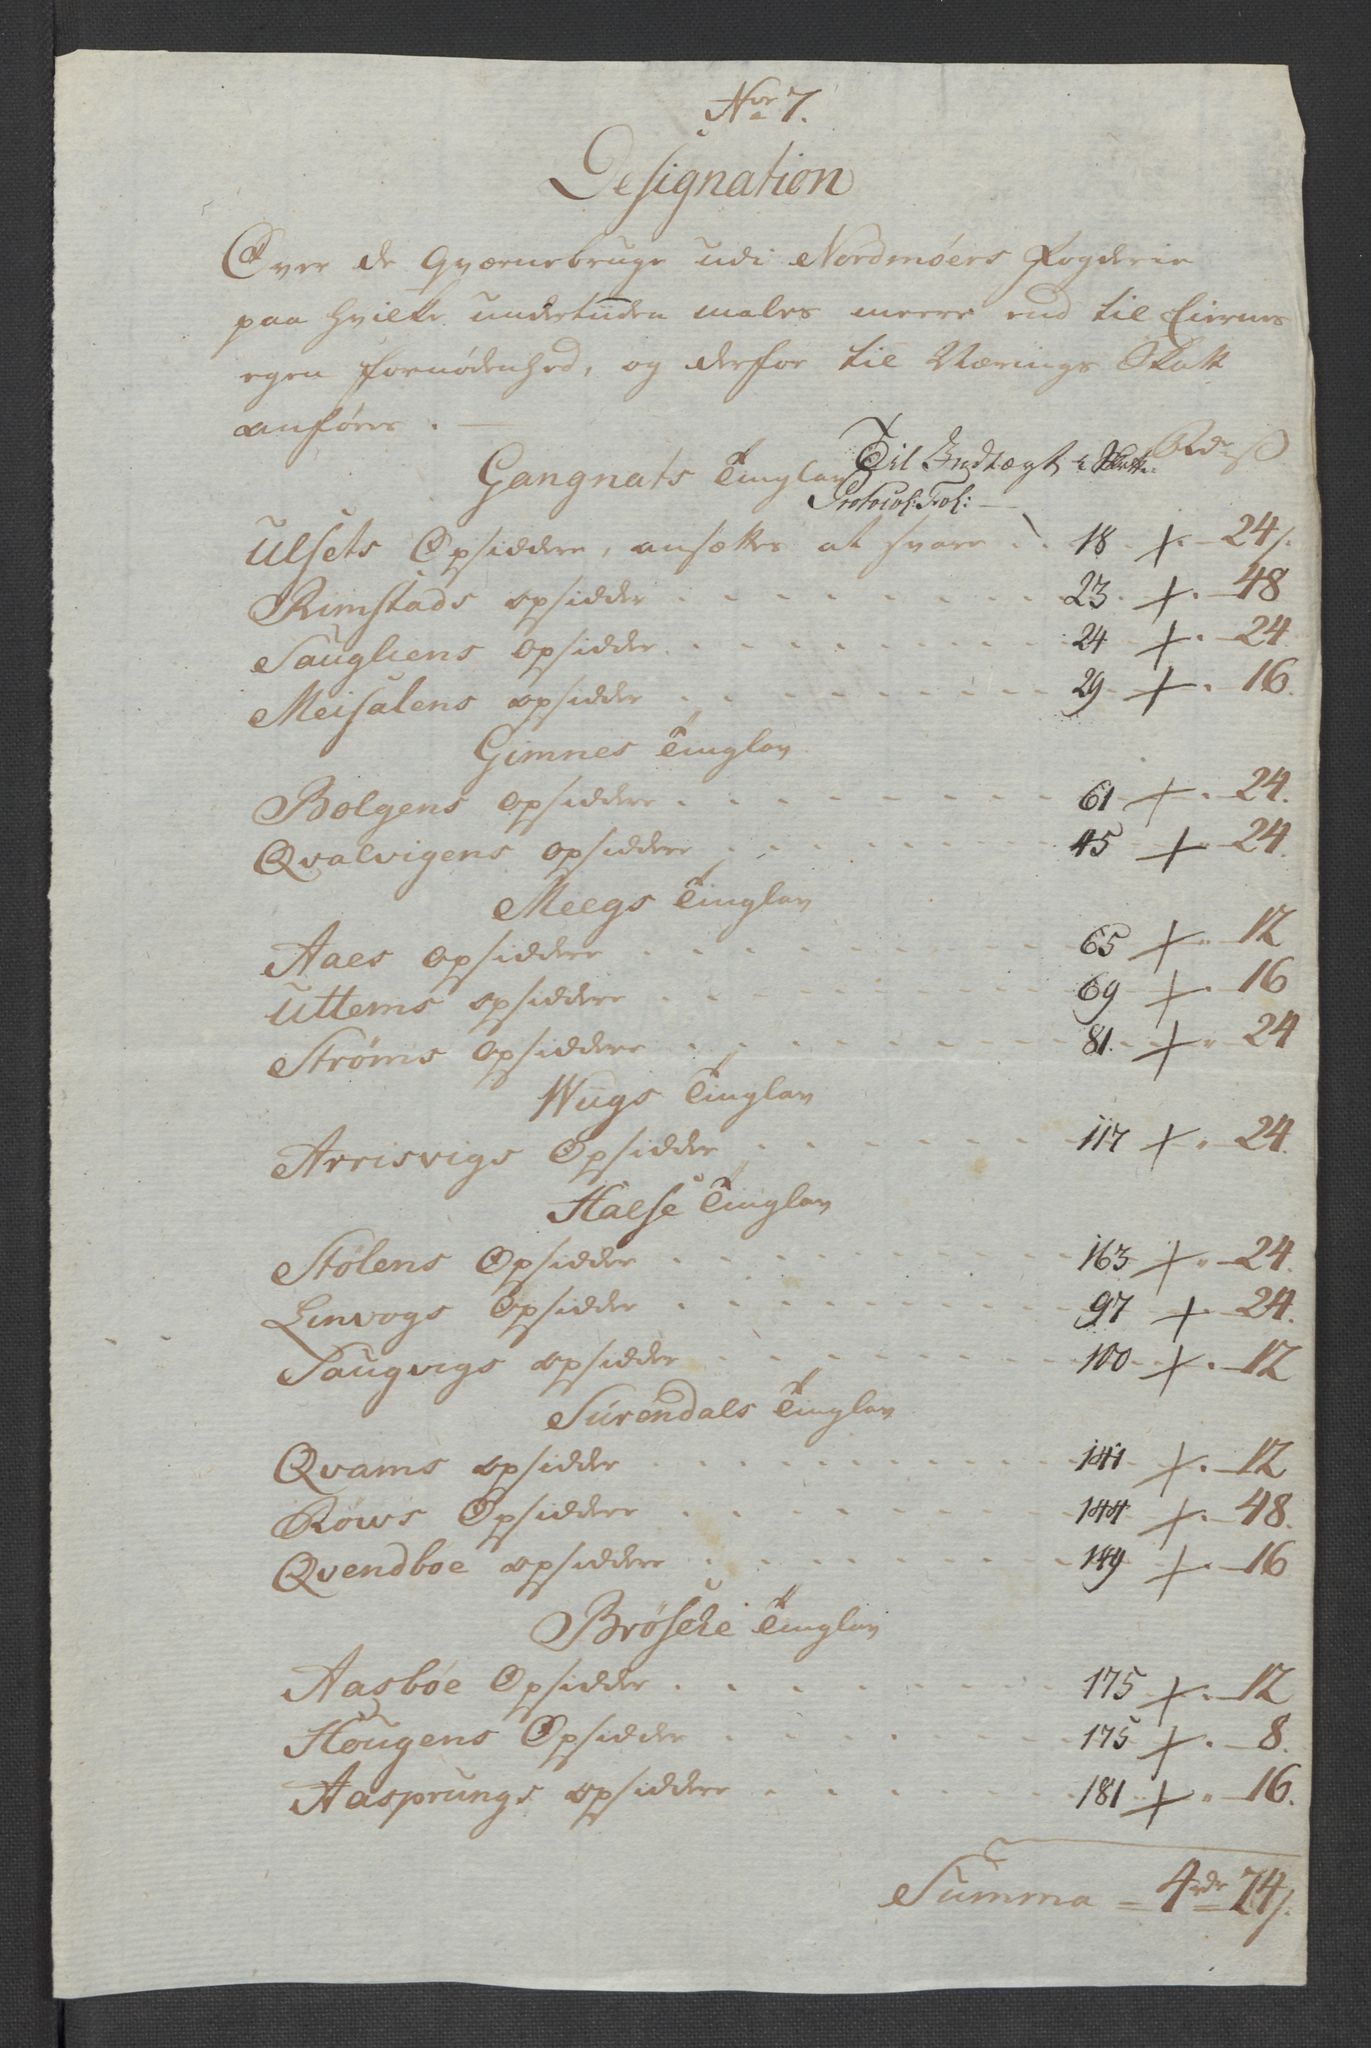 No 7.
Designation
Over de Qværnebruge udi Nordmøers Fogderie
paa hvilke undertiiden males meere end til Eiernes
egen fornødenhed, og derfor til Nærings Skatt
anføres.
Rdr ß
Til Indtægt i Skatte
Gangnats Tinglav
Protocol: Fol:
Ulsets Opsiddere, ansættes at svare . . 18 + . 24ß.
Rimstads opsidder . . . 23. + . 48
Saugliens opsidder . . . 24 + . 24
Meisalens opsidder . . . 29 + . 16.
Gimnes Tinglav
Bolgens opsiddere . . . 61 + . 24.
Qvalvigens opsiddere . . . 45 + " 24.
Meegs Tinglav
Aaes opsiddere . . . 65 + " 12
Uttems opsiddere . . . 69 + . 16
Strøms opsiddere . . . 81. + " 24
Wugs Tinglav
Arrisvigs Opsidder . . . 117 + " 24.
Halse Tinglav
Stølens Opsidder . . . 163 + " 24.
Linvogs Opsidder . . . 97 + . 24.
Saugvigs opsidder . . . 100 + . 12
Surendals Tinglav
Qvams opsidder . . . 141 + . 12
Røws Opsiddere . . . 144 + . 48.
Qvendboe opsiddere . . . 149 + . 16
Brøsche Tinglav
Aasbøe Opsidder . . . 175 + . 12
Hougens Opsidder . . . 175 + . 8.
Aasprungs opsiddere . . . 181 + " 16.
Summa = 4 rdr 74ß.